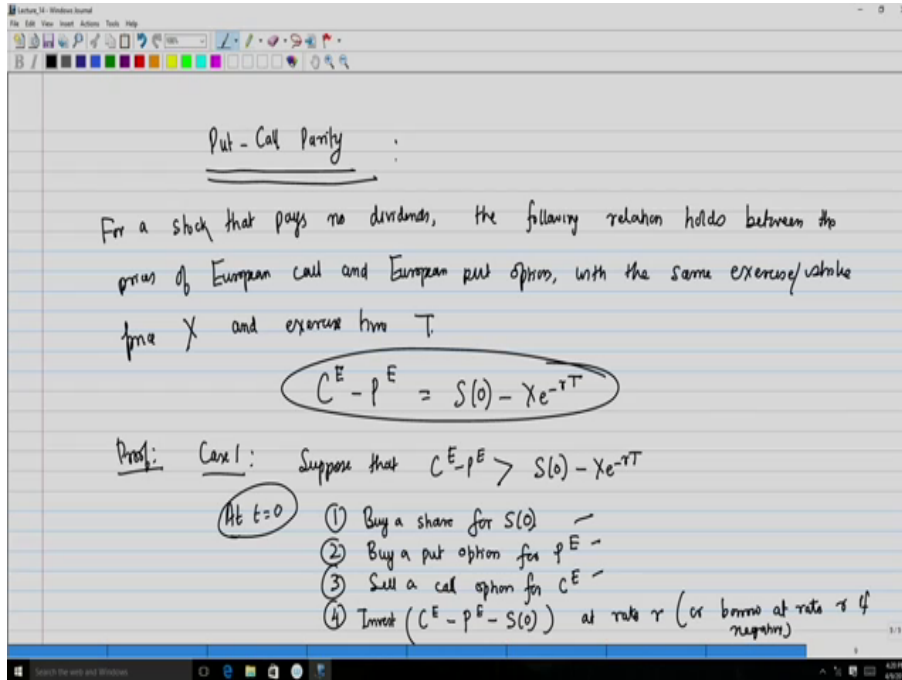 Lecture_14 - Windows Journal
File Edit View Insert Actions Tools Help
B I
Put - Call Parity :
For a stock that pays no dividends, the following relation holds between the
prices of European call and European put option, with the same exercise/strike
price X and exercise time T.
C^E - P^E = S(0) - Xe^{-rT}
Proof: Case 1: Suppose that C^E - P^E > S(0) - Xe^{-rT}
At t=0 ① Buy a share for S(0)
② Buy a put option for P^E
③ Sell a call option for C^E
④ Invest (C^E - P^E - S(0)) at rate r (or borrow at rate r if
negative)
3/3
Search the web and Windows